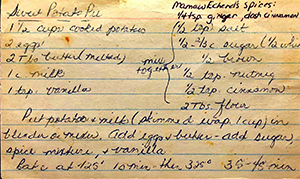 Sweet Potato Pie
Mamaw Echerd's Spices:
1/4 tsp ginger, dash cinnamon
1 1/2 cups cooked potatoes
1/2 tsp salt
2 eggs
1/2 - 2/3 c sugar (1/2 white
2 Tbs butter (melted)
mix together
1/2 brown
1 c milk
1/2 tsp. nutmeg
1 tsp vanilla
1/2 tsp. cinnamon
2 Tbs flour
Put potato & milk (skimmed evap. 1 cup) in
blender or mixer. Add eggs & butter - add sugar,
spice mixture, & vanilla
Bake at 425° 10 min - then 325° 35-45 min